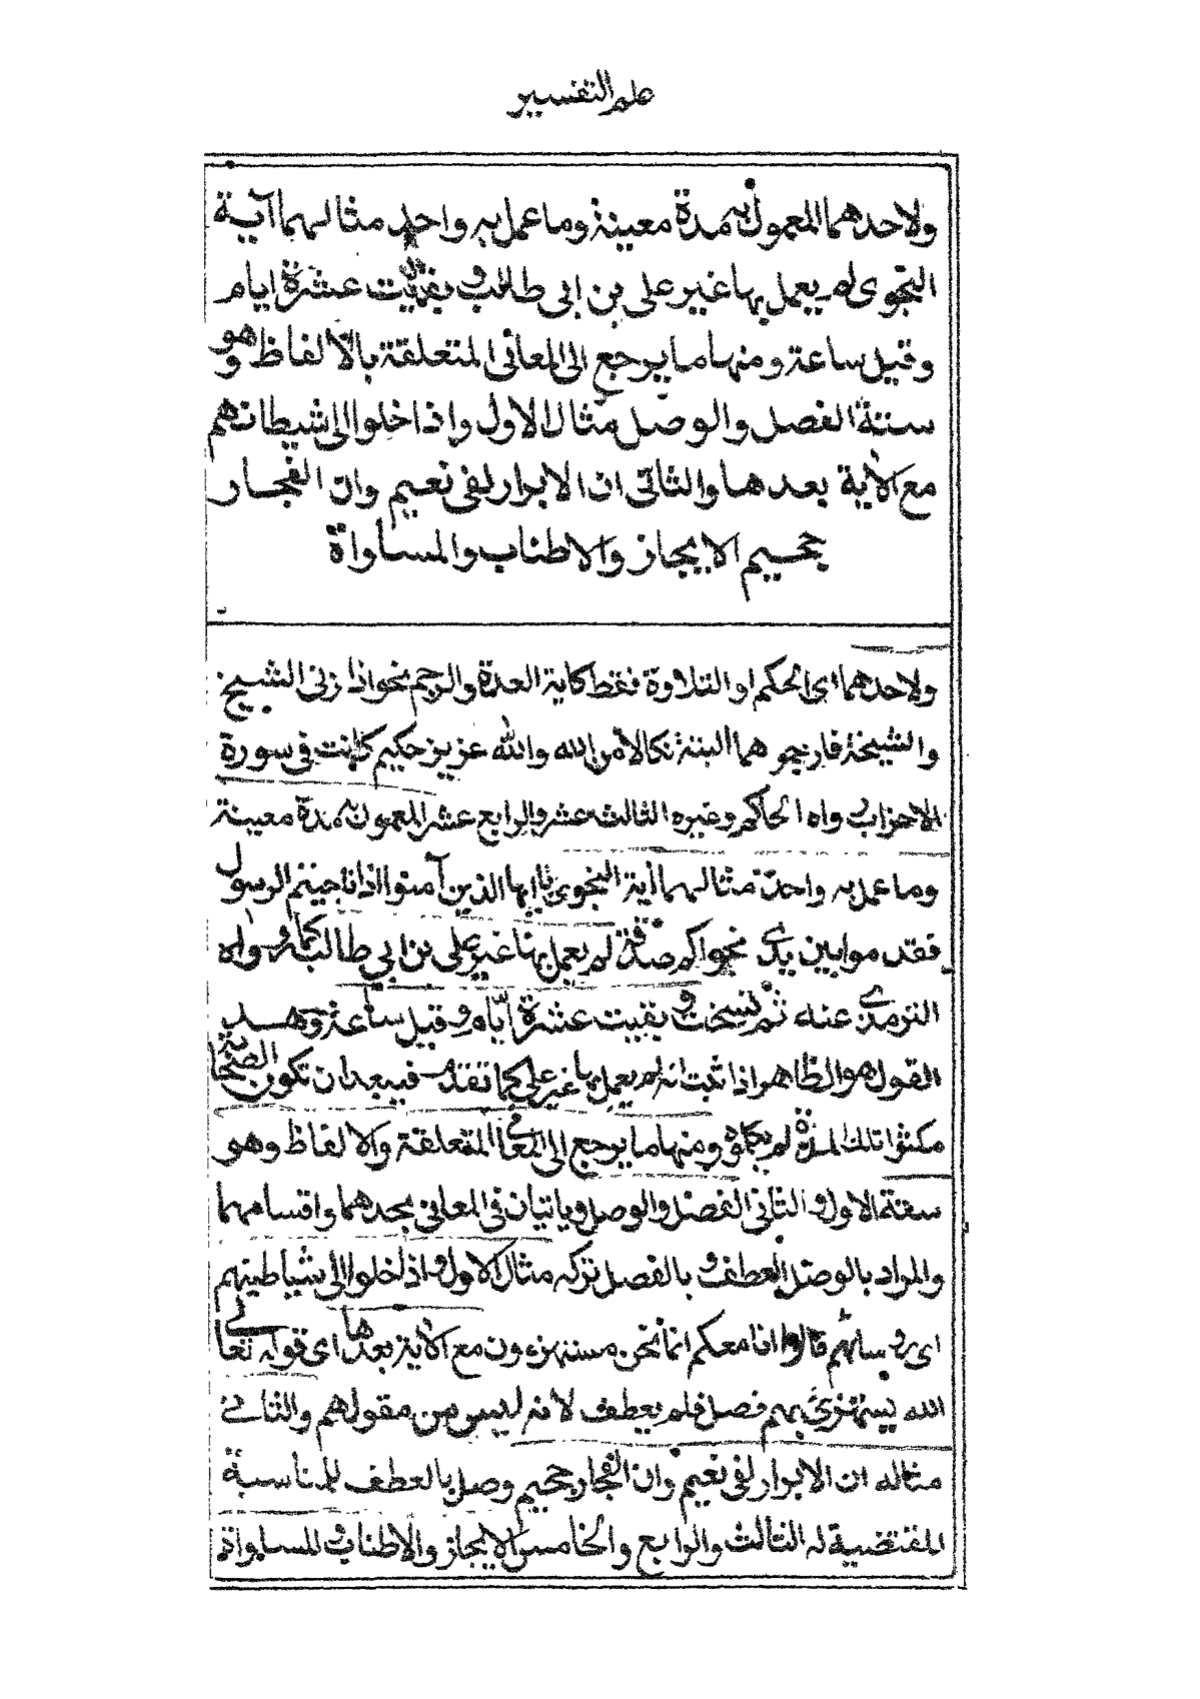 علم التفسير
ولاحدهما المعمول به مدة معينة وما عمل به واحد مثالهما آية
النجوى لم يعمل بها غير على بن ابى طالب وبقيت عشرة ايام
وقيل ساعة ومنها ما يرجع الى المعانى المتعلقة بالالفاظ وهو
ستة الفصل والوصل مثال الاول واذا خلوا الى شيطانهم
مع الآية بعدها والثانى ان الابرار لفى نعيم وان الفجار
جحيم الايجاز والاطناب والمساواة
ولاحدهما اى الحكم او التلاوة فقط كاية العدة والرجم نحو اذا زنى الشيخ
والشيخة فارجموهما البتة نكالا من الله والله عزيز حكيم كانت فى سورة
الاحزاب رواه الحاكم وغيره الثالث عشر والرابع عشر المعمول به مدة معينة
وما عمل به واحد مثالهما آية النجوى يا ايها الذين آمنوا اذا ناجيتم الرسول
فقدموا بين يدى نجواكم صدقة لم يعمل بها غير على بن ابى طالب كما رواه
الترمذى عنه ثم نسخت وبقيت عشرة ايام وقيل ساعة وهذا
القول هو الظاهر اذا ثبت انه لم يعمل بها غير على كما تقدم فيبعد ان تكون الصحابة
مكثوا تلك المدة لم يكلموه ومنها ما يرجع الى المعانى المتعلقة والالفاظ وهو
ستة الاول والثانى الفصل والوصل وياتيان فى المعانى بحدهما واقسامهما
والمراد بالوصل العطف وبالفصل تركه مثال الاول واذا خلوا الى شياطينهم
اى رؤسائهم قالوا انا معكم انما نحن مستهزءون مع الآية بعدها اى قوله تعالى
الله يستهزئ بهم فصل فلم يعطف لانه ليس من مقولهم والثانى
مثاله ان الابرار لفى نعيم وان الفجار جحيم وصل بالعطف للمناسبة
المقتضية له الثالث والرابع والخامس الايجاز والاطناب والمساواة